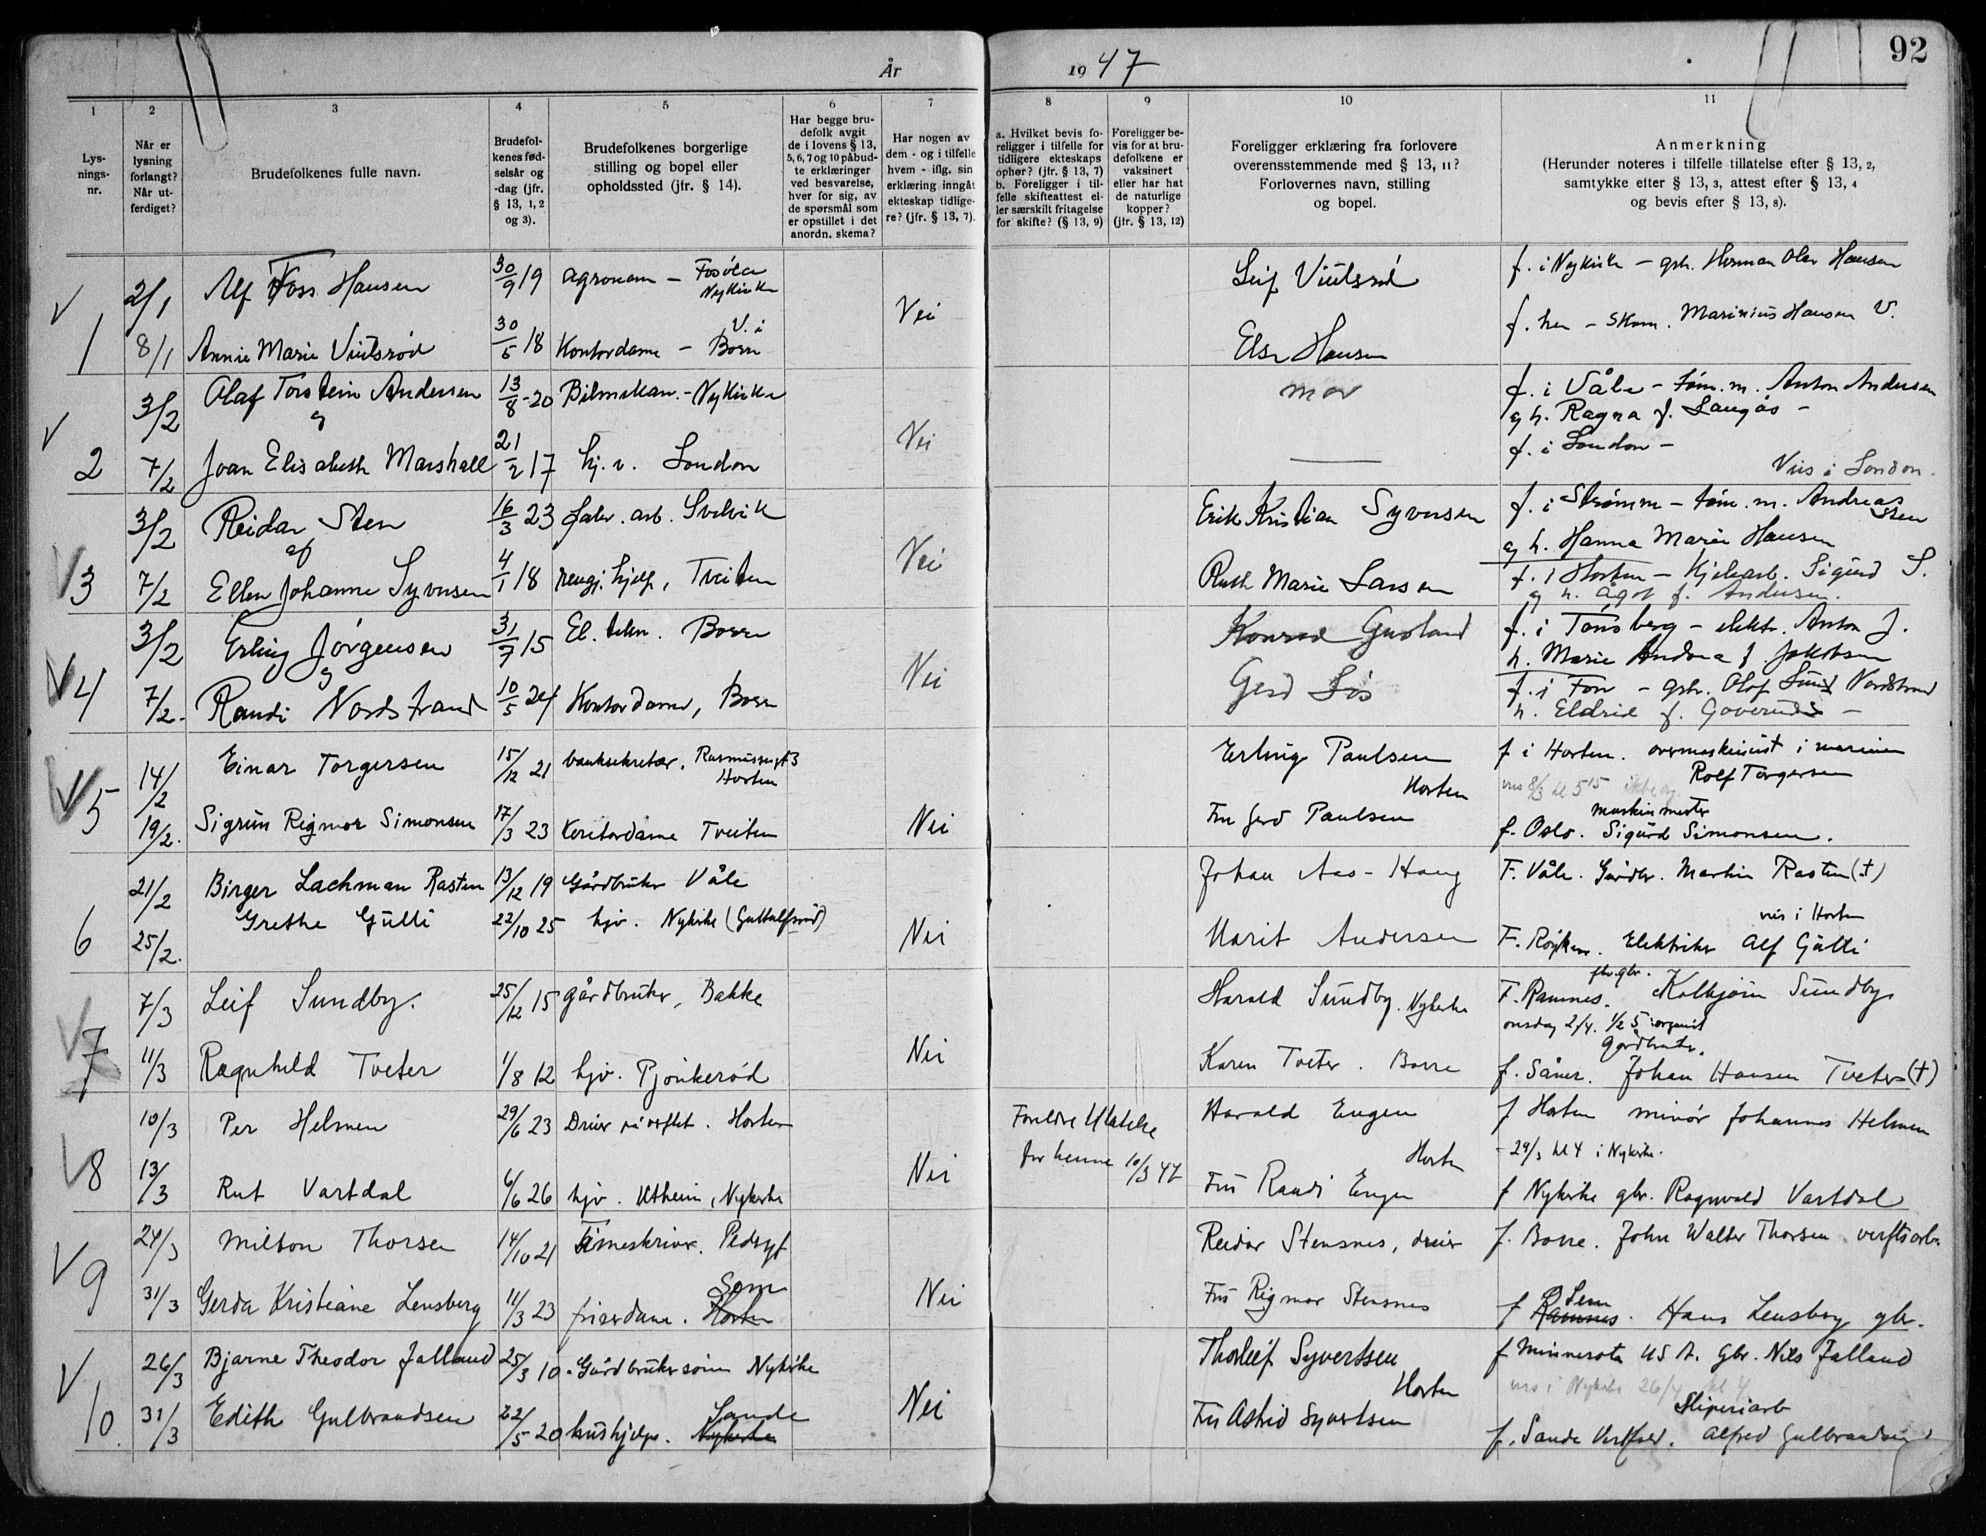 92
År 1947
1 2 3 4 5 6 7 8 9 10 11
Lys-
nings-
nr.
Når er
lysning
forlangt?
Når ut-
ferdiget?
Brudefolkenes fulle navn.
Brudefol-
kenes fød-
selsår og
-dag (jfr.
§ 13, 1, 2
og 3).
Brudefolkenes borgerlige
stilling og bopel eller
opholdssted (jfr. § 14).
Har begge bru-
defolk avgit
de i lovens § 13,
5, 6, 7 og 10 påbud-
te erklæringer
ved besvarelse,
hver for sig, av
de spørsmål som
er opstillet i det
anordn. skema?
Har nogen av
dem - og i tilfelle
hvem - iflg. sin
erklæring inngåt
ekteskap tidlige-
re? (jfr. § 13, 7).
a. Hvilket bevis fo-
religger i tilfelle for
tidligere ekteskaps
ophør? (jfr. § 13, 7)
b. Foreligger i til-
felle skifteattest el-
ler særskilt fritagelse
for skifte? (§ 13, 9)
Foreligger be-
vis for at bru-
defolkene er
vaksinert
eller har hat
de naturlige
kopper?
(jfr. § 13, 12)
Foreligger erklæring fra forlovere
overensstemmende med § 13, 11?
Forlovernes navn, stilling
og bopel.
Anmerkning
(Herunder noteres i tilfelle tillatelse efter § 13, 2,
samtykke etter § 13, 3, attest efter § 13, 4
og bevis efter § 13, 8).
2/1 Alf Foss Hansen 30/9 19 agronom – Nykirke Leif Viulsrød f. i Nykirke – gbr. Herman Olav Hansen
1 8/1 Annie Marie Viulsrød 30/5 18 Kontordame – Borre Nei Else Hansen f. her – skom. Marinius Hansen V.
3/2 Olaf Torstein Andersen 13/8-20 Bilmekan. – Nykirke mor f. i Våle – tøm.m. Anton Andersen
og
og h. Ragna f. Langås –
2 7/2 Joan Elisabeth Marshall 21/2 17 hj.v. London Nei f. i London –
Vies i London.
3/2 Reidar Sten 16/3 23 fabr. arb. Svelvik Erik Kristian Syversen f. i Strømm – tøm.m. Andreas Sten
og
og h. Hanna Marie Hansen
3 7/2 Ellen Johanne Syversen 4/1 18 rengj. hjelp, Tveiten Nei Ruth Marie Larsen f. i Horten – Kjelearb. Sigurd S.
og h. Ågot f. Andersen.
3/2 Erling Jørgensen 31/7 15 El. tekn. Borre Konrad f. i Tønsberg – elektr. Anton J.
og
h. Marie Andrea f. Jakobsen
4 7/2. Randi Nordstrand 10/5 24 Kontordame, Borre Nei Gerd f. i Fon – gbr. Olaf Nordstrand
h. Eldrid f. –
14/2 Einar Torgersen 15/12 21 banksekretær. Horten Erling Paulsen f i Horten. overmaskinist i marinen
Rolf Torgersen
Horten
5 19/2. Sigrun Rigmor Simonsen 17/3 23 Kontordame Tveiten Nei Fru Gerd Paulsen maskinmester
f. Oslo. Sigurd Simonsen.
21/2 Birger Lachman Rasten 13/12 19 Gårdbruker Våle Johan Aas-Haug F. Våle. Gårdbr. Martin Rasten (†)
Grethe Gulli 22/10 25 hjv. Nykirke
vies i Horten
6 25/2. Nei Marit Andersen F. Røyken. Elektriker Alf Gulli
7/3 Leif Sundby. 25/12 15 gårdbruker, Bakke Harald Sundby. Nykirke F. Ramnes. Kolbjørn Sundby
onsdag 2/4. 1/2 5
Gårdbruker.
7 11/3 Ragnhild Tveter 1/8 12 hjv. Pjønkerød Nei Karen Tveter. Borre f. Såner. Johan Hansen Tveter (†)
10/3 Per Helmen 29/6 23 Dreier på verftet. Horten Foreldretillatelse Harald Engen f Horten minør Johannes Helmen
for henne 10/3 47 Horten – 29/3 kl 4 i Nykirke.
8 13/3 Rut Vartdal 6/6 26 hjv. Utheim, Nykirke Nei Fru Randi Engen f Nykirke gbr. Ragnvald Vartdal
24/3 Milton Thorsen 14/10 21 Timeskriver. Reidar Stensnes, dreier f. Borre. John Walter Thorsen verftsarb.
Sem
9 31/3 Gerda Kristiane Lensberg 11/3 23 frisørdame. Horten Nei Fru Rigmor Stensnes f Ramnes Sem. Hans Lensberg gbr.
26/3 Bjarne Theodor Jalland 25/3 10. Gårdbrukersønn Nykirke Thorleif Syvertsen f Minnesota USA. Gbr. Nils Jalland
Horten vies i Nykirke 26/4 kl 4
Sande Sliperiarb
10. 31/3 Edith Gulbrandsen 22/5 20 hushjelp. Nykirke Nei Fru Astrid Syvertsen f. Sande Vestfold. Alfred Gulbrandsen